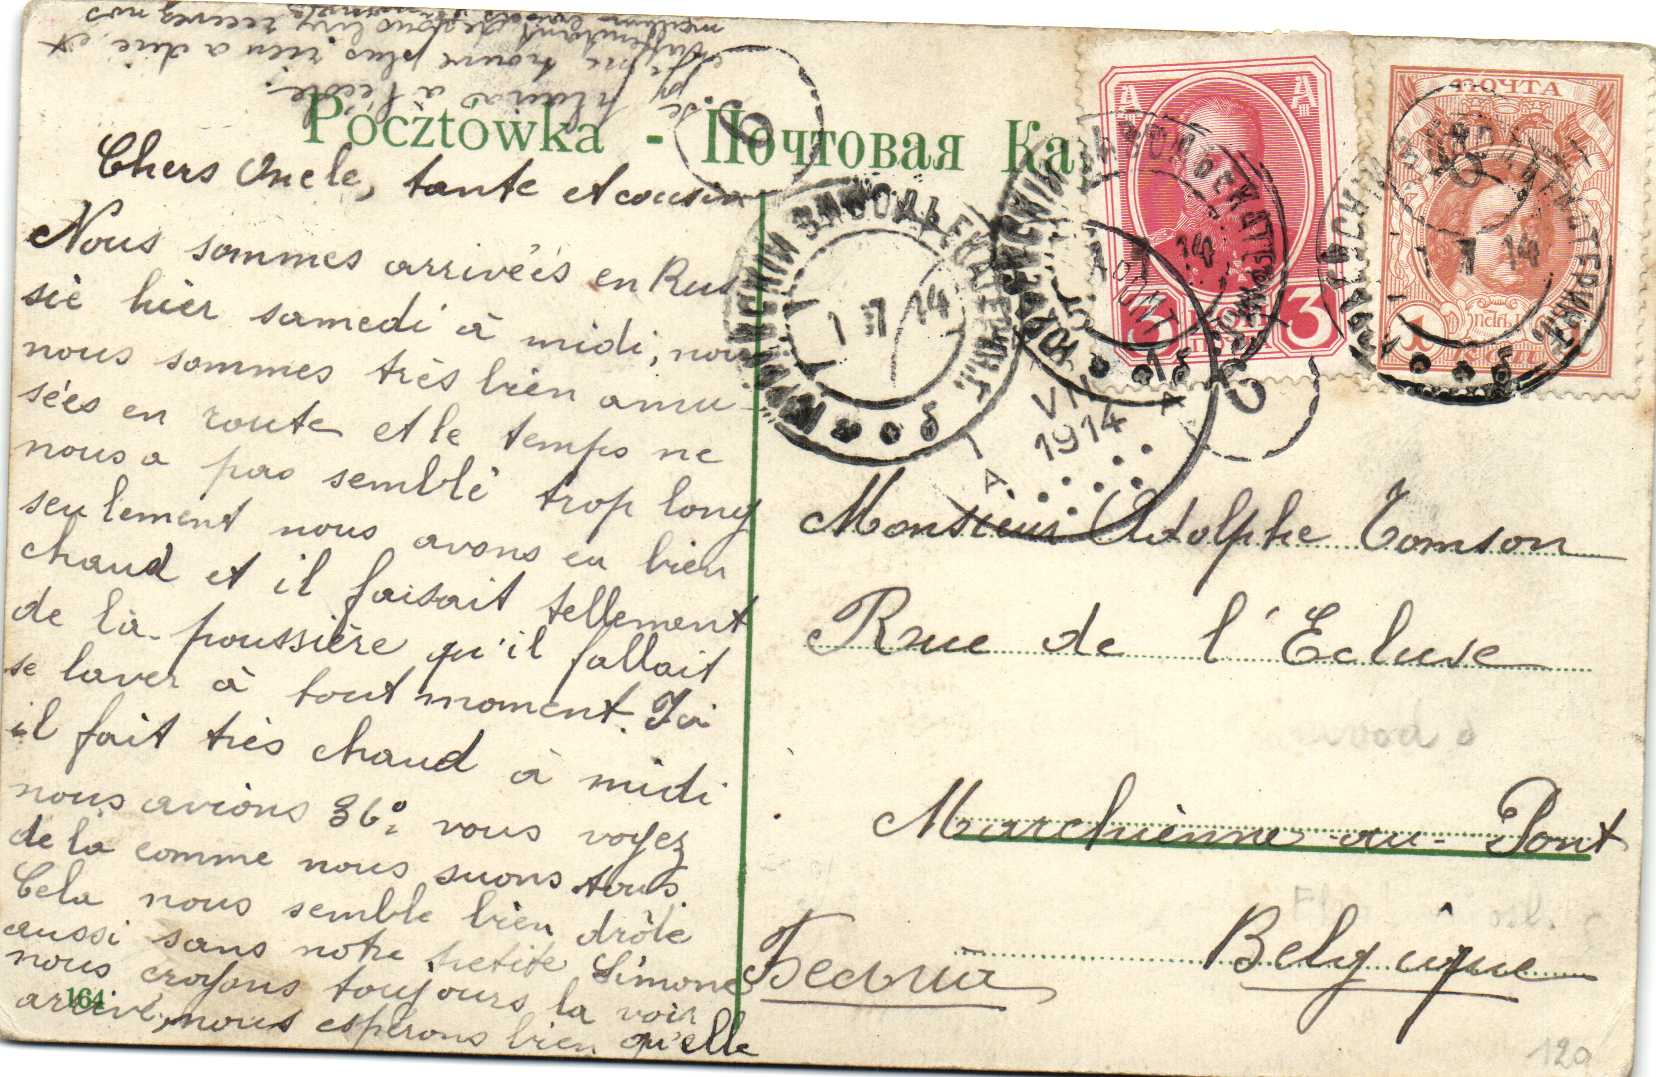 Pocztówka - Почтовая Ка
Chers Oncle, tante et cousin
Nous sommes arrivées en Rus
sie hier samedi à midi, nous
nous sommes très bien amu-
sées en route et le temps ne
nous a pas semblé trop long
seulement nous avons eu bien
chaud et il faisait tellement
de la poussière qu'il fallait
se laver à tout moment. Ici
il fait très chaud à midi
nous avions 36° vous voyez
de là comme nous suons tous.
Cela nous semble bien drôle
aussi sans notre petite Simone
nous croyons toujours la voir
arrivé, nous espérons bien qu'elle
se plaira à l'école.
je ne trouve plus rien a dire et
attendant de vous lire recevez nos
meilleurs baisers
164
ПОЧТА
3
КОП
1
КОП
1 7 14
1 7 14
7 14
VII
1914
A
Monsieur Adolphe Tomson
Rue de l'Ecluse
Marchienne-au-Pont
Belgique
Бельгия
120